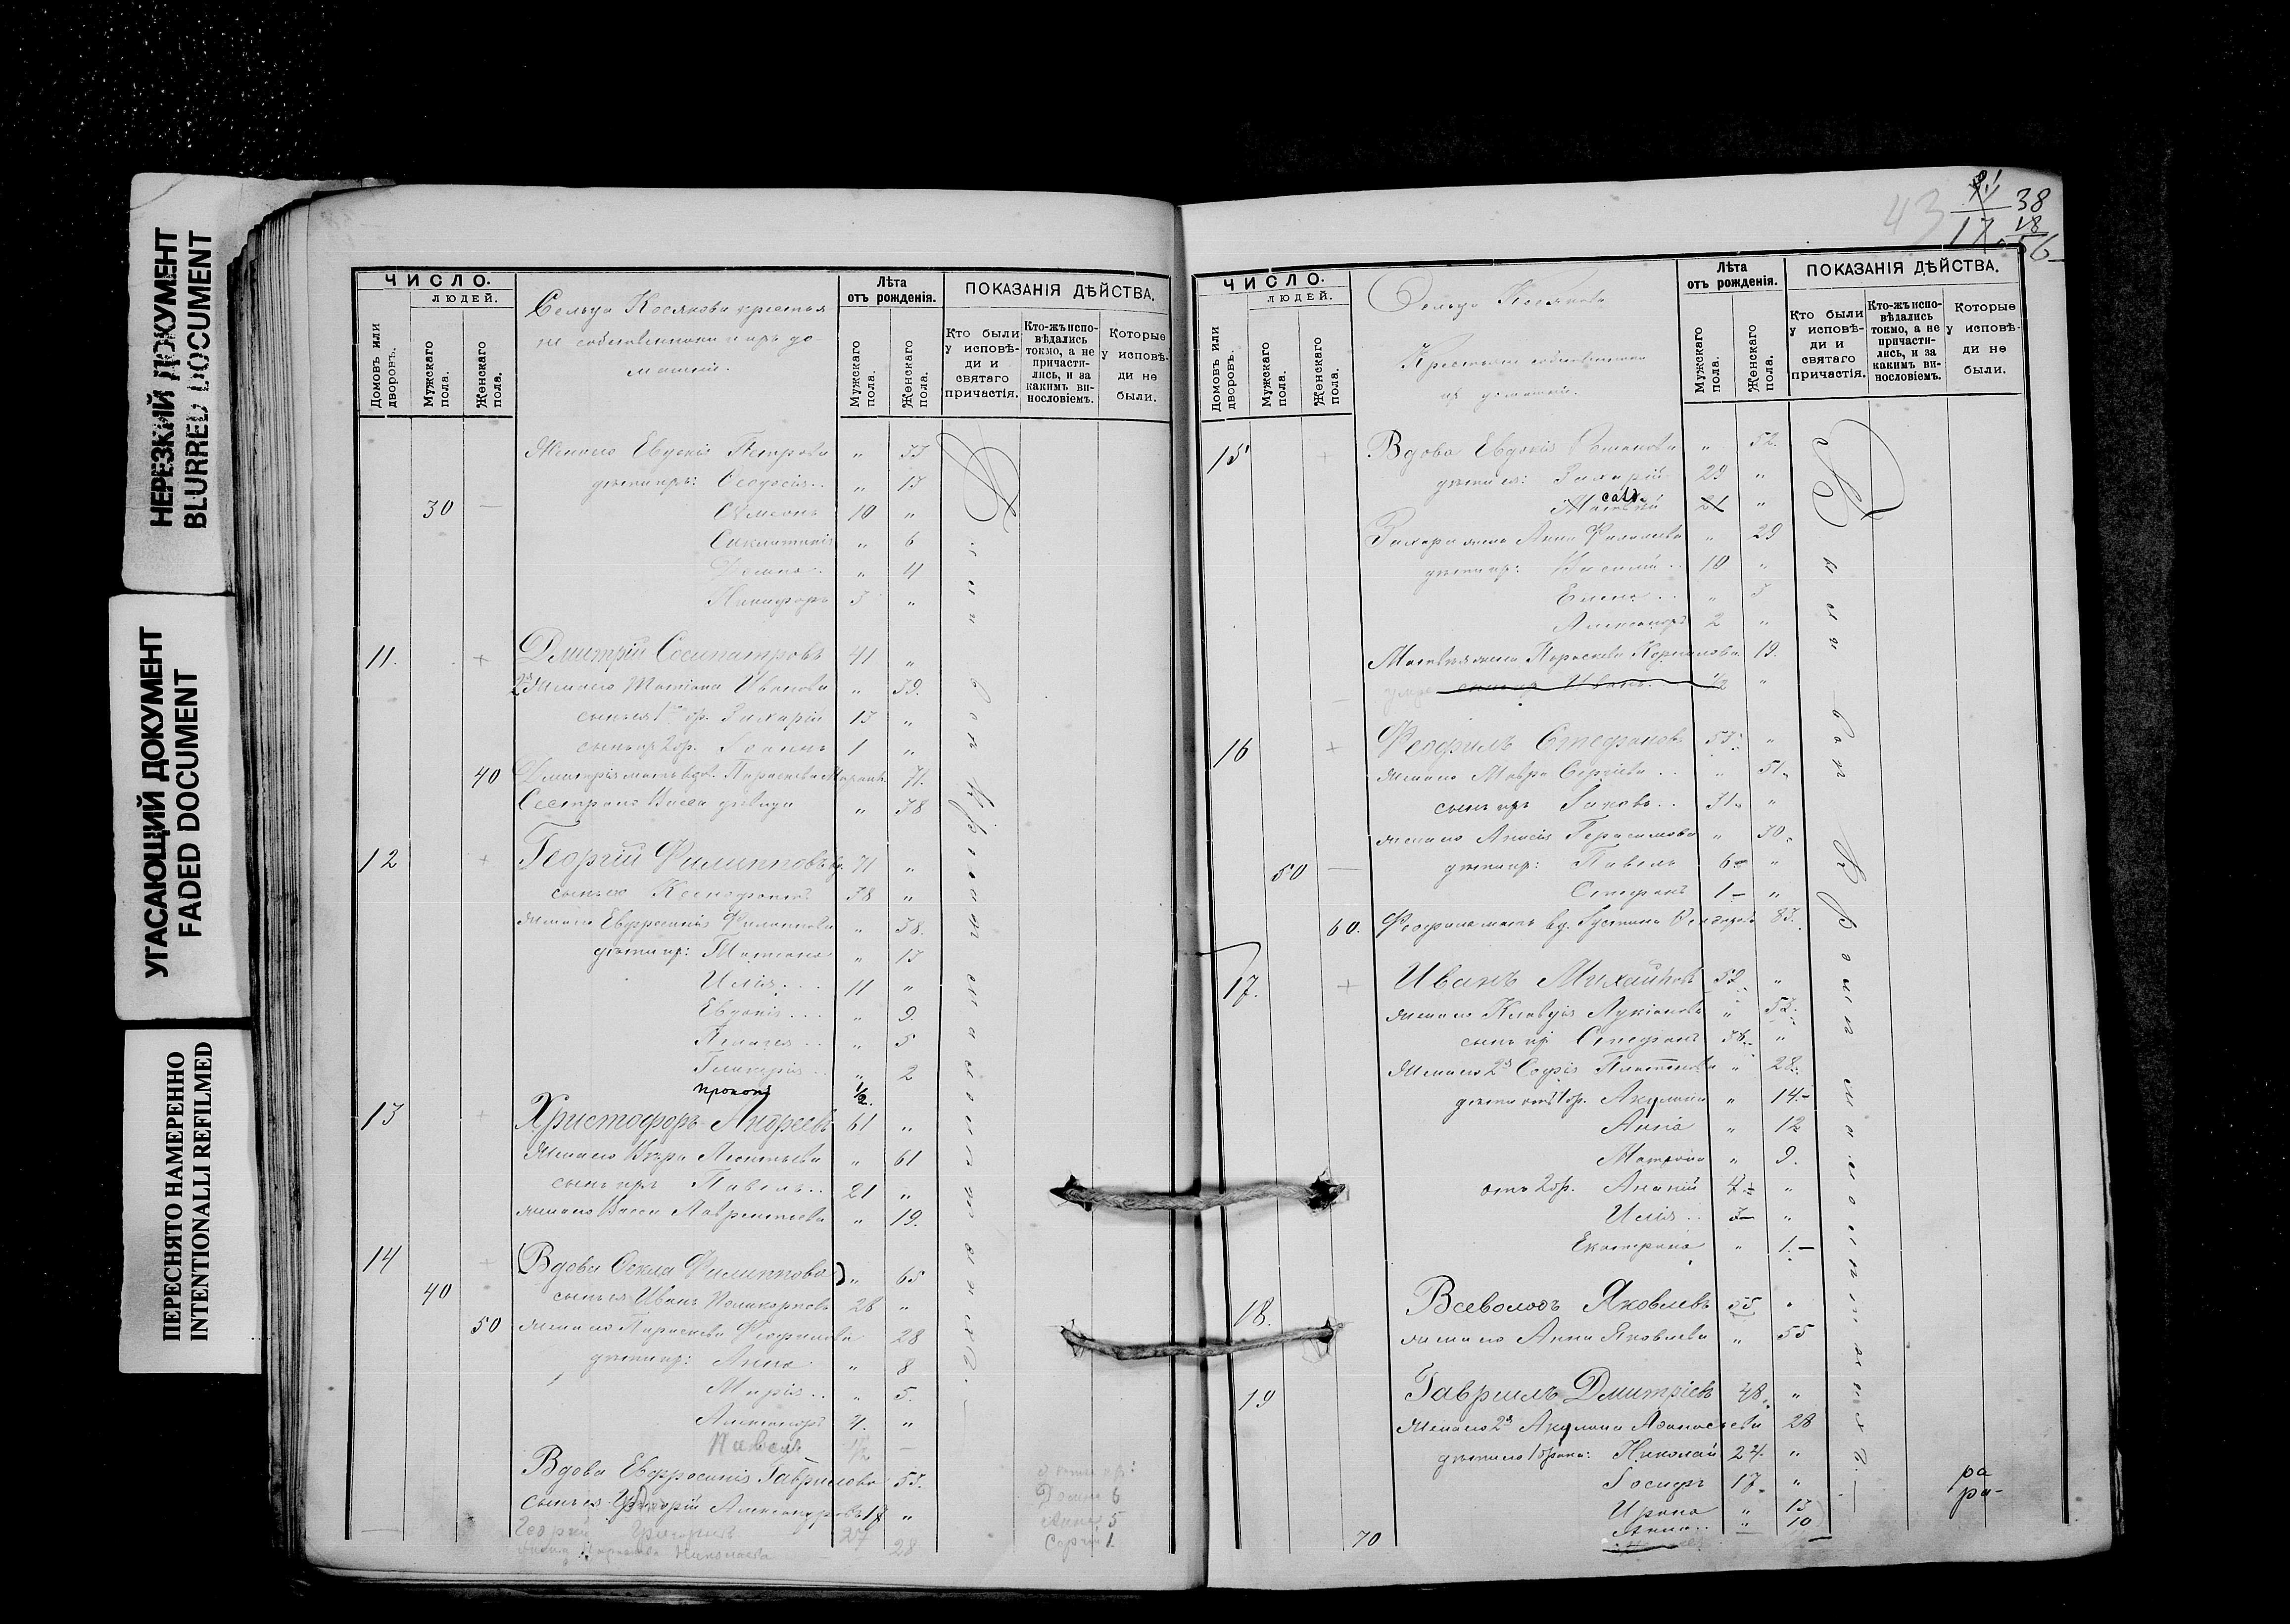 НЕРЕЗКИЙ ДОКУМЕНТ
BLURRED DOCUMENT
УГАСАЮЩИЙ ДОКУМЕНТ
FADED DOCUMENT
ПЕРЕСНЯТО НАМЕРЕННО
INTENTIONALLI REFILMED
ЧИСЛО.
ЛЮДЕЙ.
Домовъ или дворовъ.
Мужскаго пола.
Женскаго пола.
Сельца Косякова крестья
не собственники и ихъ до-
машніе.
Лѣта отъ рожденія.
Мужскаго пола.
Женскаго пола.
ПОКАЗАНІЯ ДѢЙСТВА.
Кто были у исповѣди и святаго причастія.
Кто-жъ исповѣдались токмо, а не причастились, и за какимъ винословіемъ.
Которые у исповѣди не были.
Жена его Евдокія Петрова " 33
дѣти ихъ: Феодосія " 13
30 — Симеонъ 10 "
Синклитикія " 6
Домна " 4
Никифоръ 3 "
11. + Дмитрій Сосипатровъ 41 "
2я Жена его Татіана Иванова " 39.
сынъ ея 1го бр. Захарій 13 "
сынъ ихъ 2 бр. Іоаннъ 1 "
40 Дмитрія мать вдов. Параскева 71.
Сестра его Васса дѣвица " 38
12 + Георгій Филипповъ вд. 71 "
сынъ его Ксенофонтъ 38 "
жена его Евфросинія Филиппова " 38.
дѣти ихъ: Татіана " 13
Илія 11 "
Евдокія " 9.
Пелагея " 5
Гликерія " 2
Прокопій 1/2.
13 + Христофоръ Андреевъ 61 "
Жена его Вѣра Леонтьева " 61
сынъ ихъ Павелъ 21 "
жена его Васса Лаврентьева " 19.
14 + (Вдова Фекла Филиппова) " 65
40 сынъ ея Иванъ Поликарповъ 28 "
50 жена его Параскева Феофилова 28
дѣти ихъ: Анна " 8
Марія " 5.
Александръ 4. "
Павелъ 1/2 —
Вдова Евфросинія Гаврилова 53.
Сынъ ея Григорій Александровъ 17 "
Георгій Григорьевъ 27
жена Параскева Николаева 28
Домна 6
Анна 5
Сергій 1.
Были
43
38
17
18
56
ЧИСЛО.
ЛЮДЕЙ.
Домовъ или дворовъ.
Мужскаго пола.
Женскаго пола.
Сельца Косякова
Крестьяне собственники
ихъ домашніе.
Лѣта отъ рожденія.
Мужскаго пола.
Женскаго пола.
ПОКАЗАНІЯ ДѢЙСТВА.
Кто были у исповѣди и святаго причастія.
Кто-жъ исповѣдались токмо, а не причастились, и за какимъ винословіемъ.
Которые у исповѣди не были.
15 + Вдова Евдокія Романова " 52.
дѣти ея: Захарій 29 "
Матвѣй 21 "
Захарія жена Анна Филиппова " 29
дѣти ихъ: Василій 10 "
Елена " 5
Александръ 2 "
Матвѣя жена Параскева Корнилова 19.
сынъ ихъ Иванъ 1/2 "
16 + Феофилъ Стефановъ 53. "
жена его Мавра Сергіева " 51.
сынъ ихъ Іаковъ 31. "
жена его Анисія Герасимова " 30.
50 — дѣти ихъ: Павелъ 6 "
Стефанъ 1 "
60. Феофила мать вд. Іустина 83.
17. + Иванъ Михайловъ 59. "
жена его Клавдія Лукіанова " 53.
сынъ ихъ Стефанъ 38. "
Жена его 2я Софія Платонова " 28.
дѣти отъ 1 бр. Акулина " 14.
Анна " 12
Матрона " 9.
отъ 2 бр. Ананій 4 "
Илія 3 "
Екатерина " 1.
18. Всеволодъ Яковлевъ 55. "
жена его Анна Яковлева " 55
19 Гавріилъ Дмитріевъ 48. "
Жена его 2я Акулина Афанасьева 28
дѣти его 1 брака: Николай 24. "
Іосифъ 17. "
Ирина " 13
70 Анна " 10
Были
ра
ра-